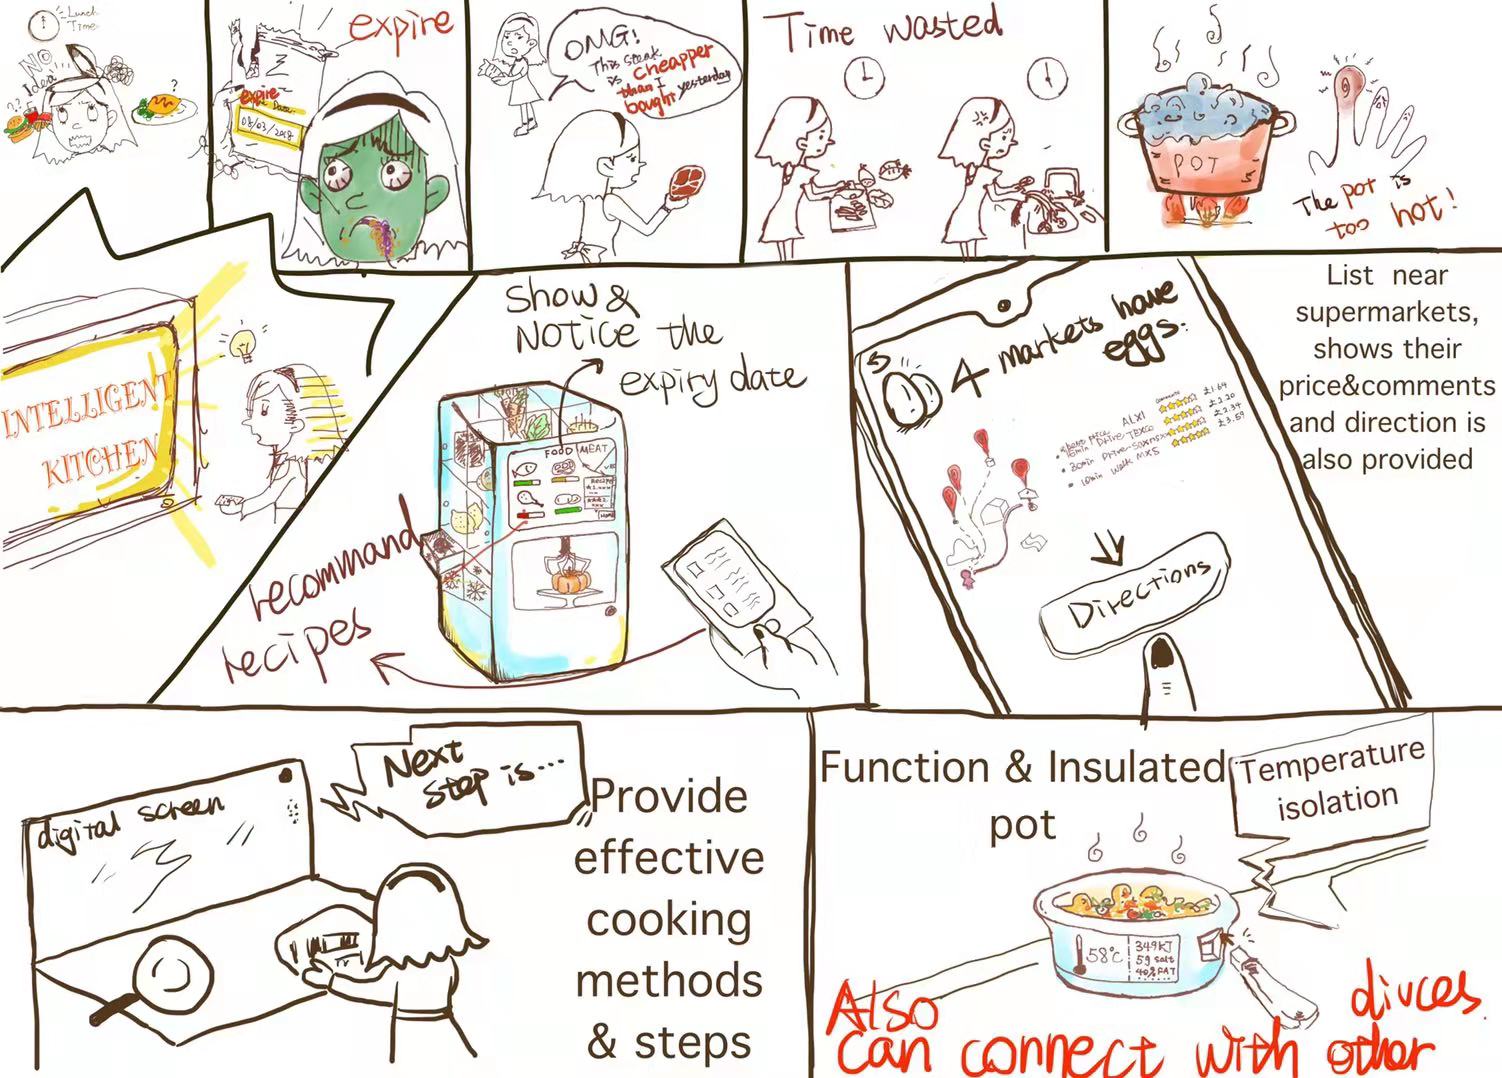 Lunch
Time
NO
Idea
??
?
expire
Z
expire
Date
08/03/2018
OMG!
This steak
is cheapper
than I
bought yesterday
Time wasted
POT
The pot is
too hot!
INTELLIGENT
KITCHEN
Show &
NOTICE the
expiry date
FOOD MEAT
Recipe
recommand
recipes
4 markets have
eggs.
comments
ALXI £1.64
15min Drive-TEXCO £2.20
30min Drive-SAXNSX £2.34
10min Walk MXS £3.59
Directions
List near
supermarkets,
shows their
price&comments
and direction is
also provided
digital screen
Next
step is...
Provide
effective
cooking
methods
& steps
Function & Insulated
pot
Temperature
isolation
58°C
349KJ
5g salt
40%FAT
Also
can connect with other
divces.